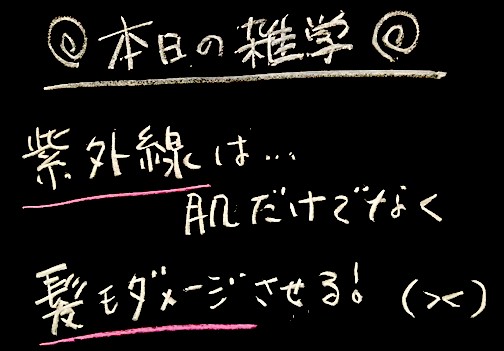 本日の雑学
紫外線は…
肌だけでなく
髪もダメージさせる! (><)